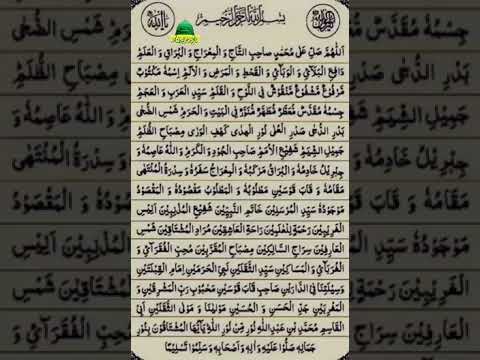 بِسْمِ اللّٰهِ الرَّحْمٰنِ الرَّحِيْمِ
اَللّٰهُمَّ صَلِّ عَلٰى مُحَمَّدٍ صَاحِبِ التَّاجِ وَ الْمِعْرَاجِ وَ الْبُرَاقِ وَ الْعَلَمِ
دَافِعِ الْبَلَآءِ وَ الْوَبَآءِ وَ الْقَحْطِ وَ الْمَرَضِ وَ الْاَلَمِ اِسْمُهٗ مَكْتُوْبٌ
مَرْفُوْعٌ مَشْفُوْعٌ مَنْقُوْشٌ فِى اللَّوْحِ وَ الْقَلَمِ سَيِّدِ الْعَرَبِ وَ الْعَجَمِ
جِسْمُهٗ مُقَدَّسٌ مُعَطَّرٌ مُطَهَّرٌ مُنَوَّرٌ فِى الْبَيْتِ وَ الْحَرَمِ شَمْسِ الضُّحٰى
بَدْرِ الدُّجٰى صَدْرِ الْعُلٰى نُوْرِ الْهُدٰى كَهْفِ الْوَرٰى مِصْبَاحِ الظُّلَمِ
جَمِيْلِ الشِّيَمِ شَفِيْعِ الْاُمَمِ صَاحِبِ الْجُوْدِ وَ الْكَرَمِ وَ اللّٰهُ عَاصِمُهٗ وَ
جِبْرِيْلُ خَادِمُهٗ وَ الْبُرَاقُ مَرْكَبُهٗ وَ الْمِعْرَاجُ سَفَرُهٗ وَ سِدْرَةُ الْمُنْتَهٰى
مَقَامُهٗ وَ قَابَ قَوْسَيْنِ مَطْلُوْبُهٗ وَ الْمَطْلُوْبُ مَقْصُوْدُهٗ وَ الْمَقْصُوْدُ
مَوْجُوْدُهٗ سَيِّدِ الْمُرْسَلِيْنَ خَاتَمِ النَّبِيِّيْنَ شَفِيْعِ الْمُذْنِبِيْنَ اَنِيْسِ
الْغَرِيْبِيْنَ رَحْمَةٍ لِّلْعٰلَمِيْنَ رَاحَةِ الْعَاشِقِيْنَ مُرَادِ الْمُشْتَاقِيْنَ شَمْسِ
الْعَارِفِيْنَ سِرَاجِ السَّالِكِيْنَ مِصْبَاحِ الْمُقَرَّبِيْنَ مُحِبِّ الْفُقَرَآءِ وَ
الْغُرَبَآءِ وَ الْمَسَاكِيْنِ سَيِّدِ الثَّقَلَيْنِ نَبِيِّ الْحَرَمَيْنِ اِمَامِ الْقِبْلَتَيْنِ
وَسِيْلَتِنَا فِى الدَّارَيْنِ صَاحِبِ قَابَ قَوْسَيْنِ مَحْبُوْبِ رَبِّ الْمَشْرِقَيْنِ وَ
الْمَغْرِبَيْنِ جَدِّ الْحَسَنِ وَ الْحُسَيْنِ مَوْلٰىنَا وَ مَوْلَى الثَّقَلَيْنِ اَبِى
الْقَاسِمِ مُحَمَّدِ بْنِ عَبْدِ اللّٰهِ نُوْرٍ مِّنْ نُّوْرِ اللّٰهِ يٰٓاَيُّهَا الْمُشْتَاقُوْنَ بِنُوْرِ
جَمَالِهٖ صَلُّوْا عَلَيْهِ وَ اٰلِهٖ وَ اَصْحَابِهٖ وَ سَلِّمُوْا تَسْلِيْمًا